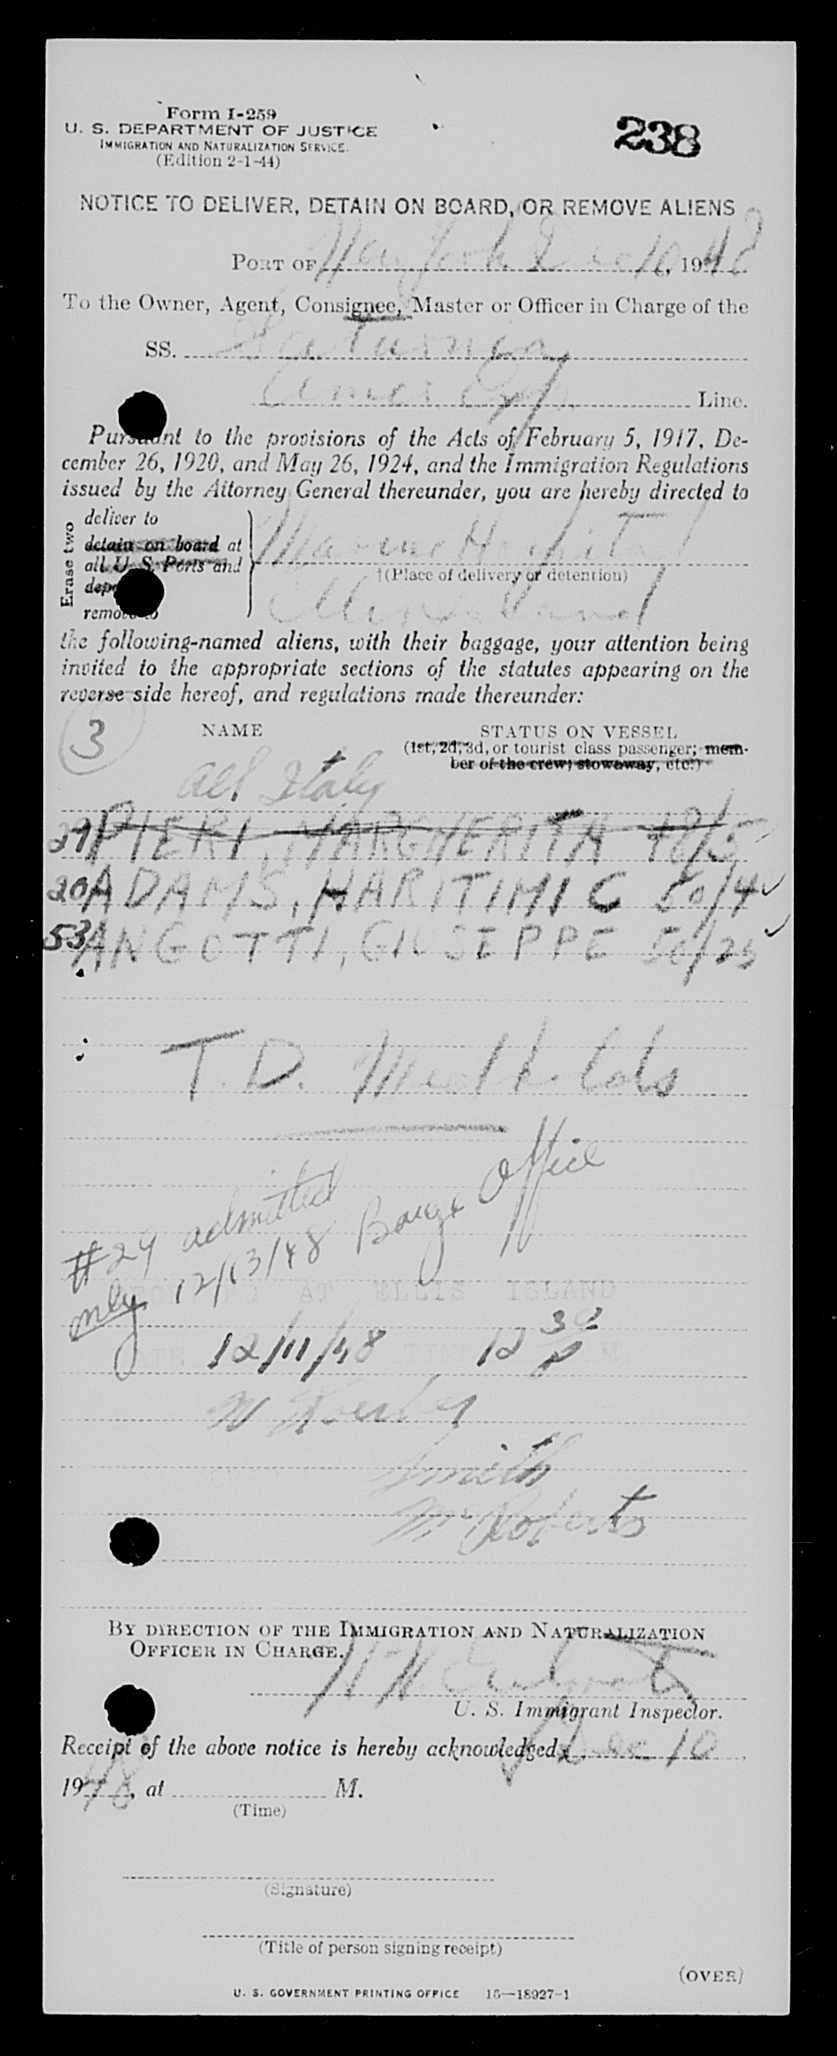 Form I-259
U. S. DEPARTMENT OF JUSTICE
IMMIGRATION AND NATURALIZATION SERVICE
(Edition 2-1-44)
238
NOTICE TO DELIVER, DETAIN ON BOARD, OR REMOVE ALIENS
PORT OF New York Dec 10, 1948
To the Owner, Agent, Consignee, Master or Officer in Charge of the
SS. Saturnia
Amer Exp. Line.
Pursuant to the provisions of the Acts of February 5, 1917, De-
cember 26, 1920, and May 26, 1924, and the Immigration Regulations
issued by the Attorney General thereunder, you are hereby directed to
Erase two
deliver to
detain on board at
all U. S. Ports and
remove to
Marine Hospital
†(Place of delivery or detention)
Ellis Island
the following-named aliens, with their baggage, your attention being
invited to the appropriate sections of the statutes appearing on the
reverse side hereof, and regulations made thereunder:
3
NAME
STATUS ON VESSEL
(1st, 2d, 3d, or tourist class passenger; mem-
ber of the crew; stowaway, etc.)
All Italy
29 PIERI, MARGHERITA 48/5
20 ADAMS, MARITIMI C 50/4
53 ANGOTTI, GIUSEPPE 50/25
T. D. Med Holds
#29 admitted
only 12/13/48 Barge Office
AT ELLIS ISLAND
12/11/48 12 30 P M
Smith
McRoberts
BY DIRECTION OF THE IMMIGRATION AND NATURALIZATION
OFFICER IN CHARGE.
U. S. Immigrant Inspector.
Receipt of the above notice is hereby acknowledged, Dec 10
1948, at M.
(Time)
(Signature)
(Title of person signing receipt)
(OVER)
U. S. GOVERNMENT PRINTING OFFICE 16—18927-1